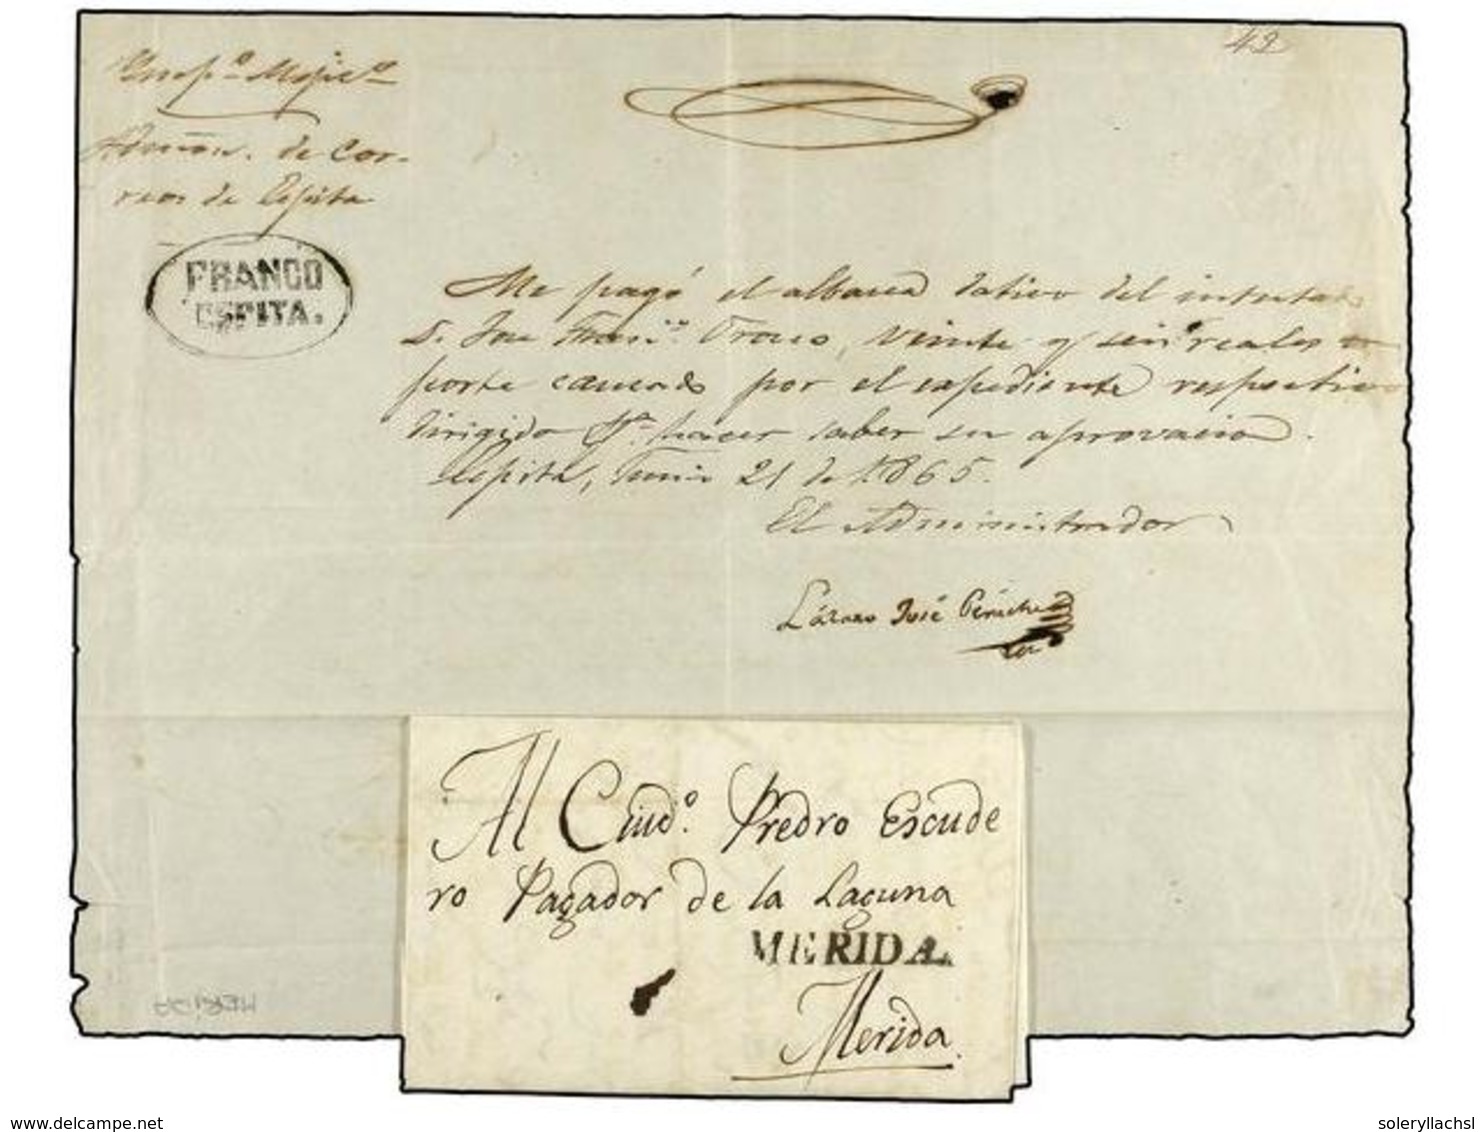 42
Imp.º Mejic.º
Admon. de Cor-
reos de Espita
FRANCO
ESPITA.
Me pagó el albacea dativo del intestado
D. Jose Fran.co, veinte y seis reales
porte causado por el expediente respectivo
dirigido p.a hacer saber su aprovacion.
Espita, Junio 21 de 1865.
El Administrador
Lázaro José
Al Ciud.º Predro Escude
ro Pagador de la Laguna
MERIDA.
Merida.
MERIDA
delcampe.net
soleryllachsl